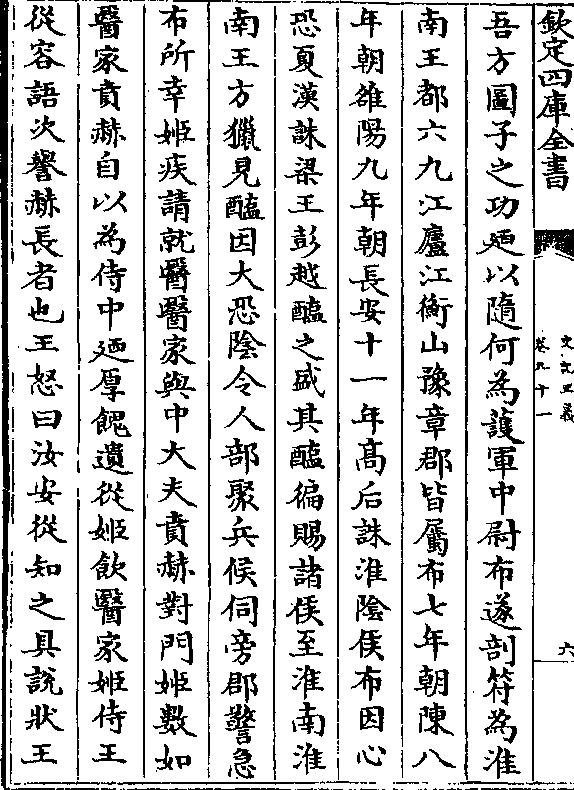 欽定四庫全書
史記正義
卷九十一
六
吾方圖子之功廼以隨何為護軍中尉布遂剖符為淮
南王都六九江廬江衡山豫章郡皆屬布七年朝陳八
年朝雒陽九年朝長安十一年髙后誅淮隂侯布因心
恐夏漢誅梁王彭越醢之盛其醢徧賜諸侯至淮南淮
南王方獵見醢因大恐隂令人部聚兵候伺旁郡警急
布所幸姬疾請就醫醫家與中大夫賁赫對門姬數如
醫家賁赫自以為侍中廼厚餽遺從姬飲醫家姬侍王
從容語次譽赫長者也王怒曰汝安從知之具說狀王